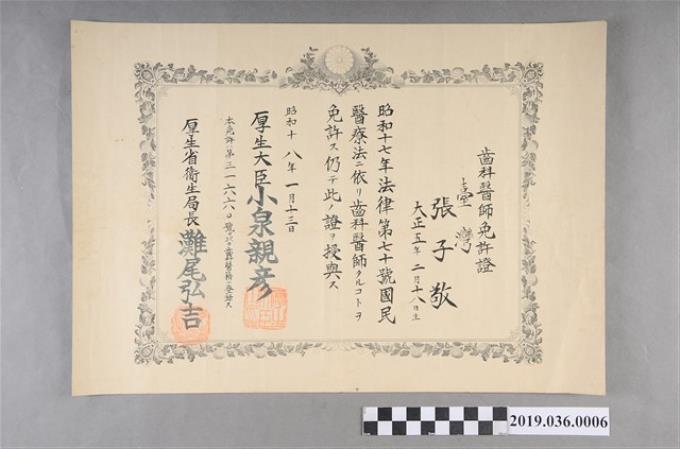 齒科醫師免許證
臺灣
張子敬
大正五年二月十八日生
昭和十七年法律第七十號國民
醫療法ニ依リ齒科醫師タルコトヲ
免許ス仍テ此ノ證ヲ授與ス
昭和十八年一月十三日
厚生大臣小泉親彥
本免許第三一六六八號ヲ以テ齒科醫籍ニ登錄ス
厚生省衛生局長灘尾弘吉
2019.036.0006